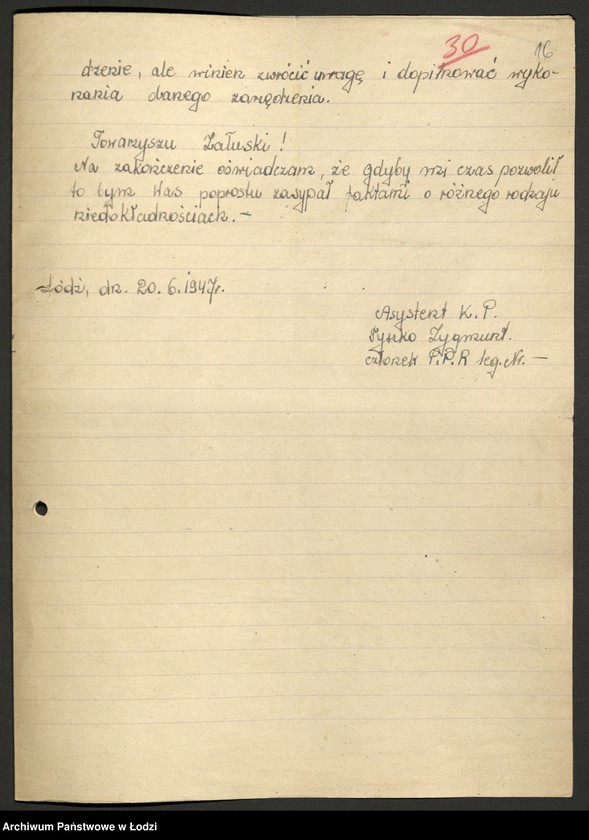 30 16
dzenie, ale winien zwrócić uwagę i dopilnować wyko-
nania danego zarządzenia.
Towarzyszu Załuski!
Na zakończenie oświadczam, że gdyby mi czas pozwolił
to bym Was poprostu zasypał faktami o różnego rodzaju
niedokładnościach. —
Łódź, dn. 20.6.1947r.
Asystent K.P.
Zygmunt.
członek P.P.R leg. Nr. —
Archiwum Państwowe w Łodzi